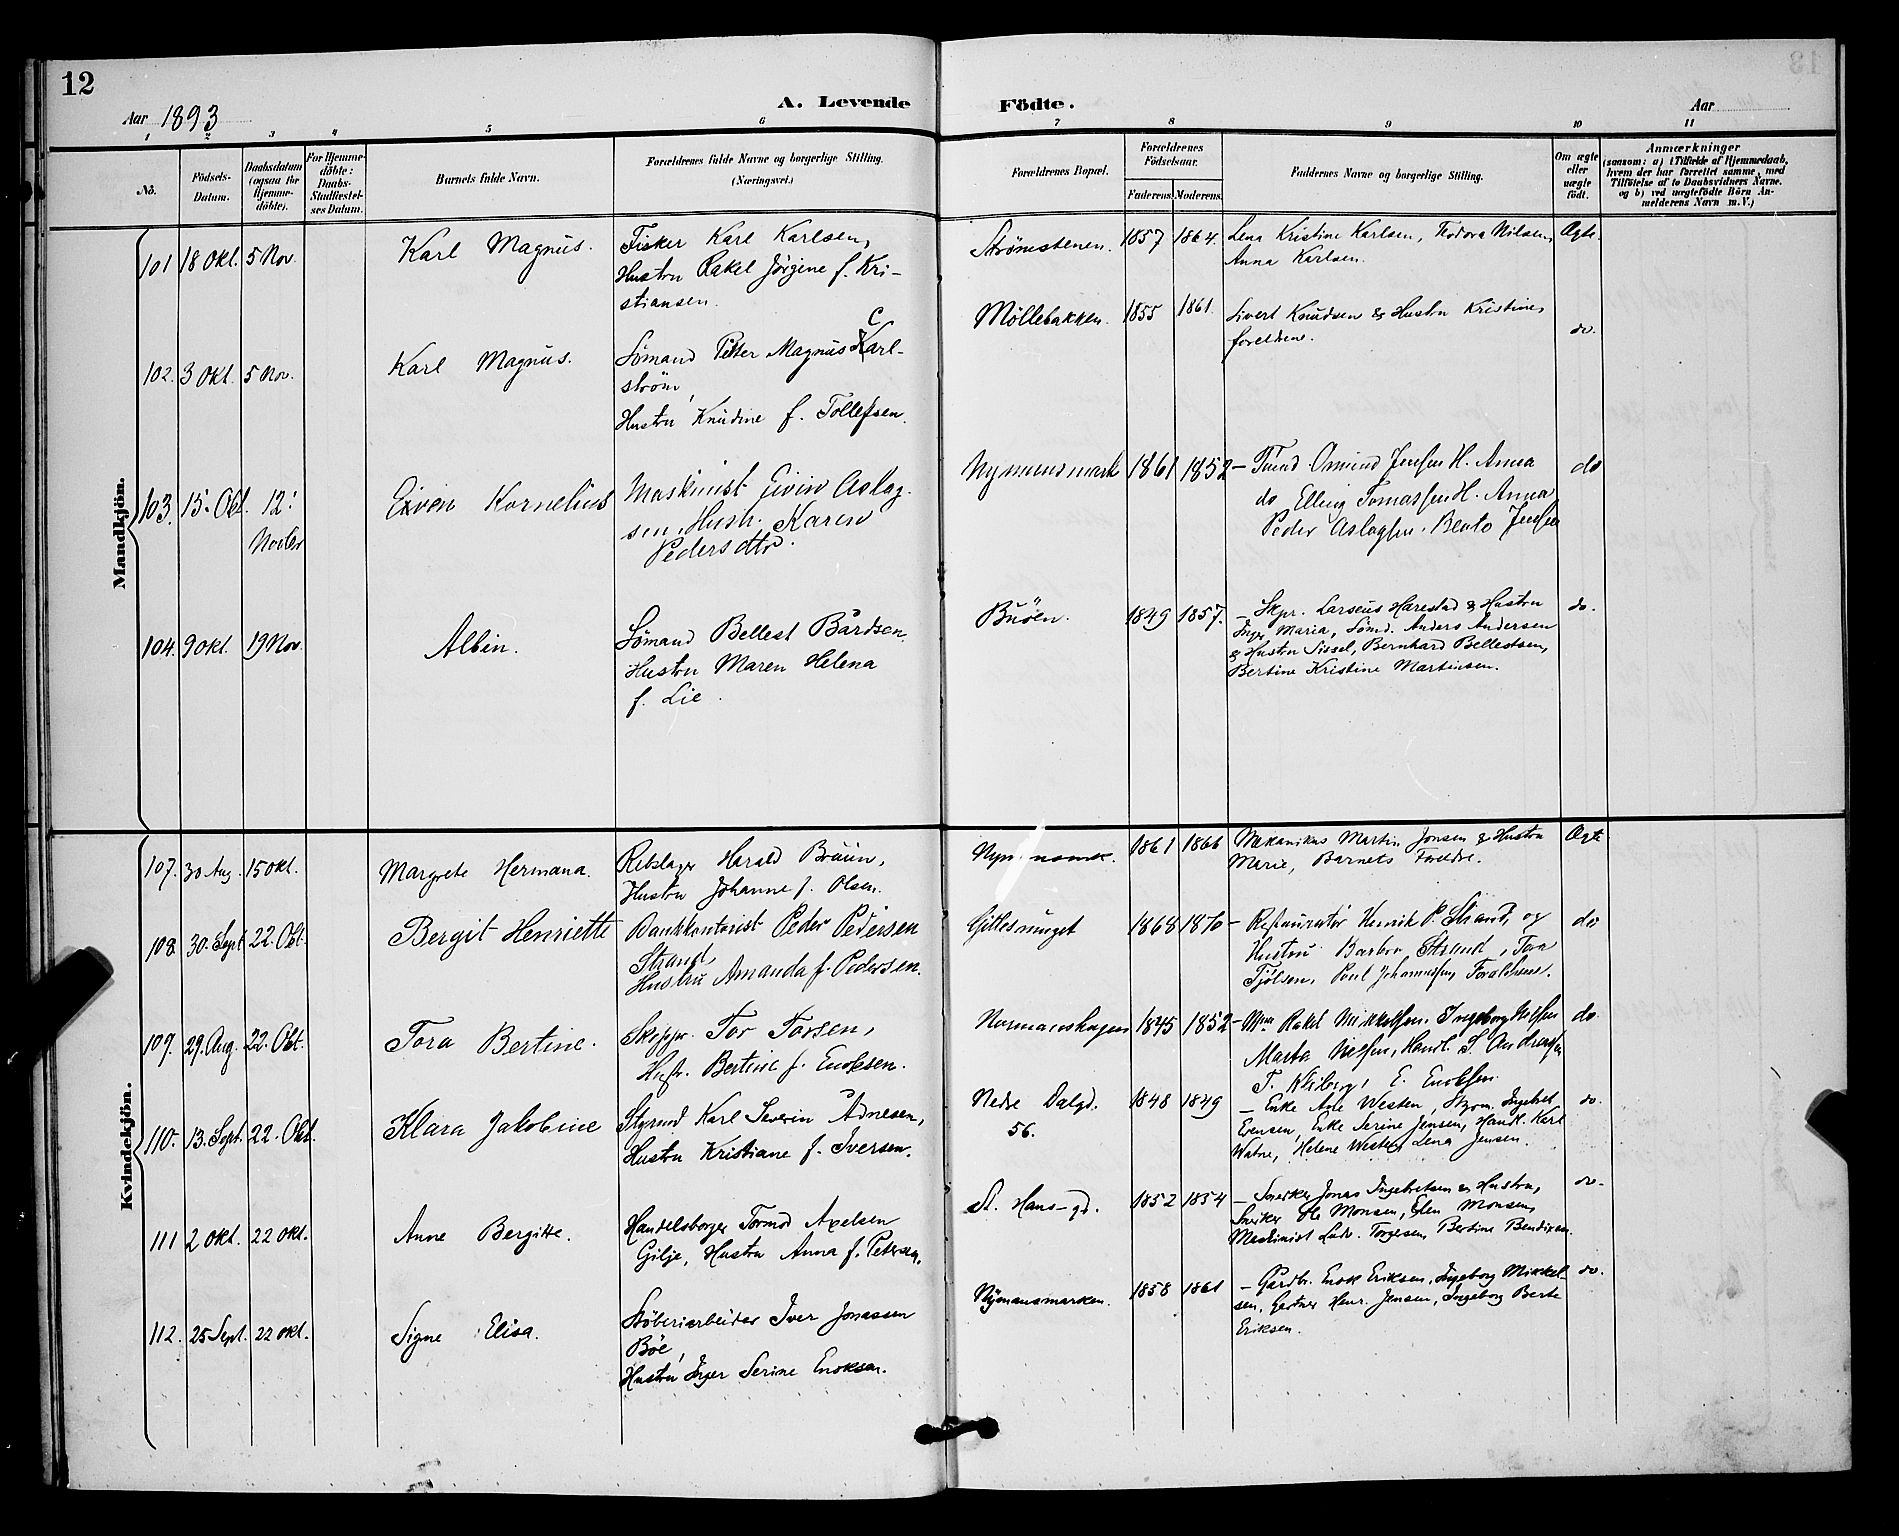 12
Aar 1893
A. Levende
Födte.
Aar
13
1 2 3 4 5 6 7 8 9 10 11
No.
Födsels-Datum.
Daabsdatum (ogsaa for Hjemme-döbte).
For Hjemme-döbte: Daabs-Stadfæstel-ses Datum.
Barnets fulde Navn.
Forældrenes fulde Navne og borgerlige Stilling. (Næringsvei.)
Forældrenes Bopæl.
Forældrenes Födselsaar.
Faderens. Moderens.
Faddernes Navne og borgerlige Stilling.
Om ægte eller uægte födt.
Anmærkninger
(saasom: a) i Tilfælde af Hjemmedaab, hvem der har forrettet samme, med Tilföielse af to Daabsvidners Navne, og b) ved uægtefödte Börn An-melderens Navn m. V.)
Mandkjön.
101 18 Okt. 5 Nov. Karl Magnus. Fisker Karl Karlsen,
Hustru Rakel Jörgine f. Kri-
stiansen.
Strömstenen. 1857 1864. Lena Kristine Karlsen, Teodora Nilsen, Ægte.
Anna Karlsen.
102. 3 Okt. 5 Nov. Karl Magnus. Sömand Petter Magnus Carl-
ström,
Hustru Knudine f. Tollefsen.
Möllebakken. 1855 1861. Sivert Knudsen & Hustru Kristine,
foreldrene. do.
103. 15. Okt. 12. Novbr Eiven Kornelius Maskinist Eivin Aslag-
sen, Hustr. Karen
Pedersdtr.
Nymansmark 1861 1852 – Tmd Omund Jensen H. Anna do
do Elling Tomassen H. Anna
Peder Aslagsen. Beato Jensen
104. 9 Okt. 19 Nov. Albin. Sömand Bellest Bårdsen,
Hustru Maren Helena
f. Lie.
Buöen. 1849 1857. – Skpr. Larseus Harestad & Hustru do.
Inger Maria, Sömd. Anders Andersen
& Hustru Sissel, Bernhard Bellestsen,
Bertine Kristine Martinsen.
Kvindekjön.
107. 30 Aug. 15 Okt. Margrete Hermana. Rebslager Harald Bruun,
Hustru Johanne f. Olsen.
1861 1866 Mekanikus Martin Jonsen & Hustru Ægte
Marie, Barnets Foreldre.
108. 30. Sept 22. Okt. Bergit Henriette Bankkontorist Peder Pedersen
Strand,
Hustru Amanda f. Pedersen.
1868 1870 – Restauratör Henrik P. Strand, og do
Hustru Barbra Strand, Tora
Tjölsen, Poul Johannesen, Foraldrene.
109. 29. Aug. 22. Okt. Tora Bertine. Skippr. Tor Torsen,
Hustr. Bertine f. Enoksen.
Normanshagen 1845 1852 – Rakel Mikkelsen. Ingeborg Nilsen do.
Marta Nielsen, Handl. S. Andreasen
T. Wiborg, E. Enoksen
110. 13. Sept. 22. Okt. Klara Jakobine Styrmd Karl Severin Adnesen,
Hustru Kristiane f. Iversen.
Nedre Dalgd. 56. 1848 1849 – Enke Ane Westen, Skom. Ingebret do.
Evensen, Enke Serine Jensen, Handl. Karl
Watne, Helene Westen, Lena Jensen.
111 2 Okt. 22 Okt. Anne Bergitte. Handelsborger Tormod Axelsen
Gilje, Hustru Anna f. Petersen.
St. Hans-gd. 1852 1854 – Snerker Jonas Ingebretsen & Hustru, do.
Snerker Ole Monsen, Elen Monsen,
Maskinist Ludv. Torgersen, Bertine Bendixen.
112. 25 Sept. 22 Okt. Signe Elisa. Stöberiarbeider Iver Jonassen
Böe,
Hustru Inger Serine Enoksen.
Nymansmarken. 1858 1861 – Gårdbr. Enok Eriksen, Ingeborg Mikkel- do.
sen, Gertner Henr. Jensen, Ingeborg Berte
Eriksen.